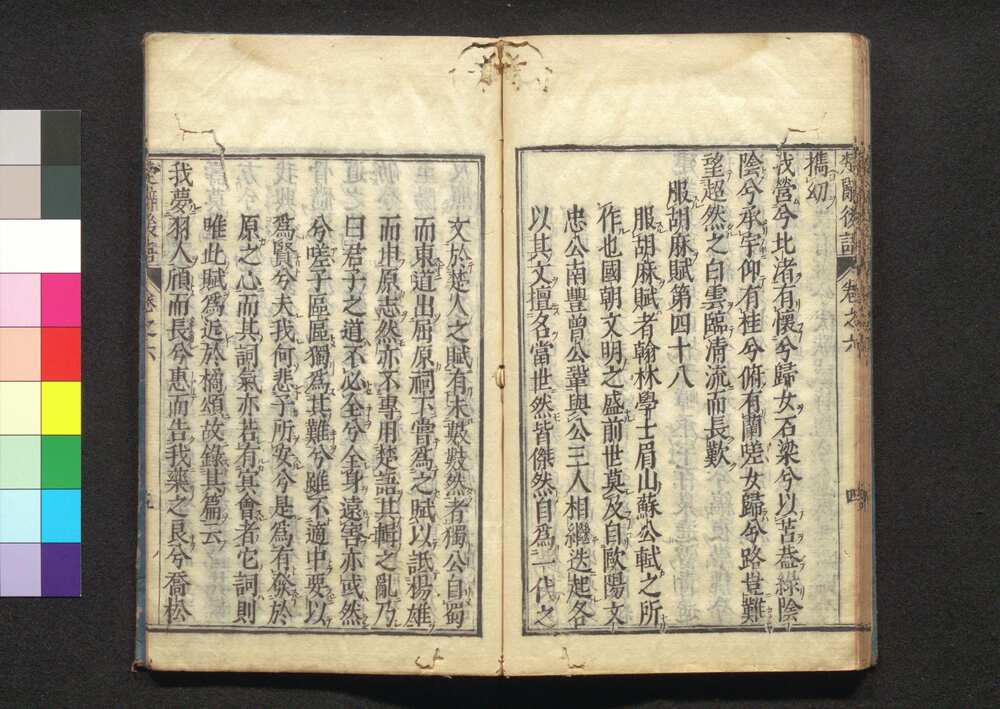 楚辭後語 卷之六 四
攜幼
我營兮北渚有懷兮歸女石梁兮以苫蓋綠陰
陰兮承宇仰有桂兮俯有蘭嗟女歸兮路豈難
望超然之白雲臨清流而長歎
服胡麻賦第四十八
服胡麻賦者翰林學士眉山蘇公軾之所
作也國朝文明之盛前世莫及自歐陽文
忠公南豐曾公鞏與公三人相繼迭起各
以其文擅名當世然皆傑然自爲一代之
文於楚人之賦有未數數然者獨公自蜀
而東道出屈原祠下嘗爲之賦以詆揚雄
而申原志然亦不專用楚語其輯之亂乃
曰君子之道不必全兮全身遠害亦或然
兮嗟子區區獨爲其難兮雖不適中要以
爲賢兮夫我何悲子所安兮是爲有發於
原之心而其詞氣亦若有冥會者它詞則
唯此賦爲近於橘頌故錄其篇云
我夢羽人頎而長兮惠而告我藥之良兮喬松
楚辭後語 卷之六 五